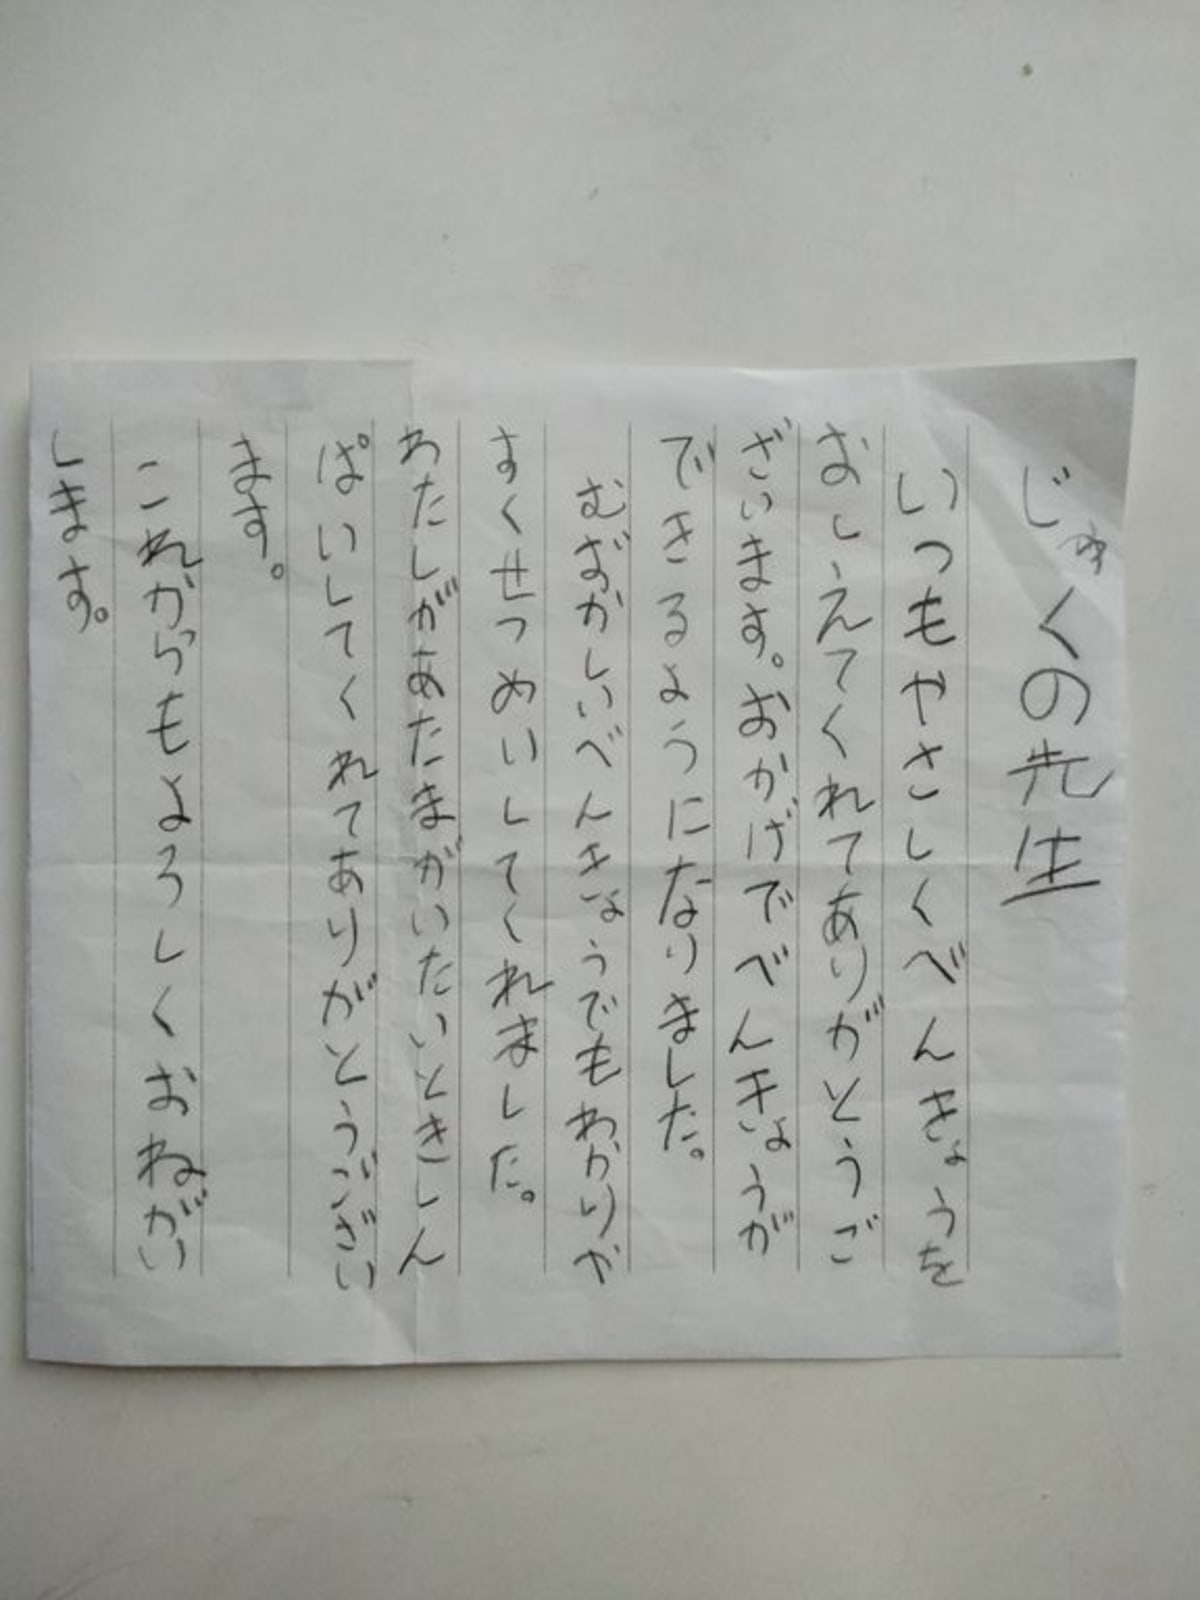 じゅくの先生
いつもやさしくべんきょうを
おしえてくれてありがとうご
ざいます。おかげでべんきょうが
できるようになりました。
むずかしいべんきょうでもわかりや
すくせつめいしてくれました。
わたしがあたまがいたいときしん
ぱいしてくれてありがとうござい
ます。
これからもよろしくおねがい
します。